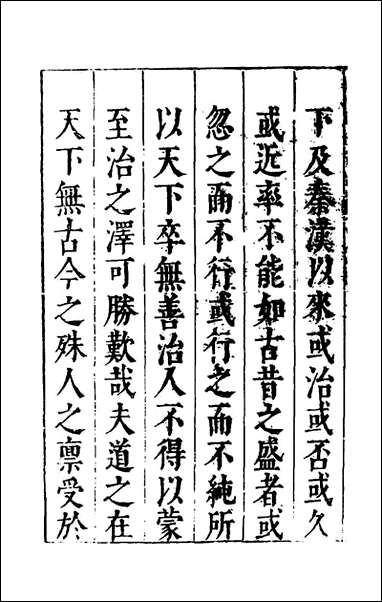 下及秦漢以來或治或否或久
或近率不能如古昔之盛者或
忽之而不行或行之而不純所
以天下卒無善治人不得以蒙
至治之澤可勝歎哉夫道之在
天下無古今之殊人之禀受於